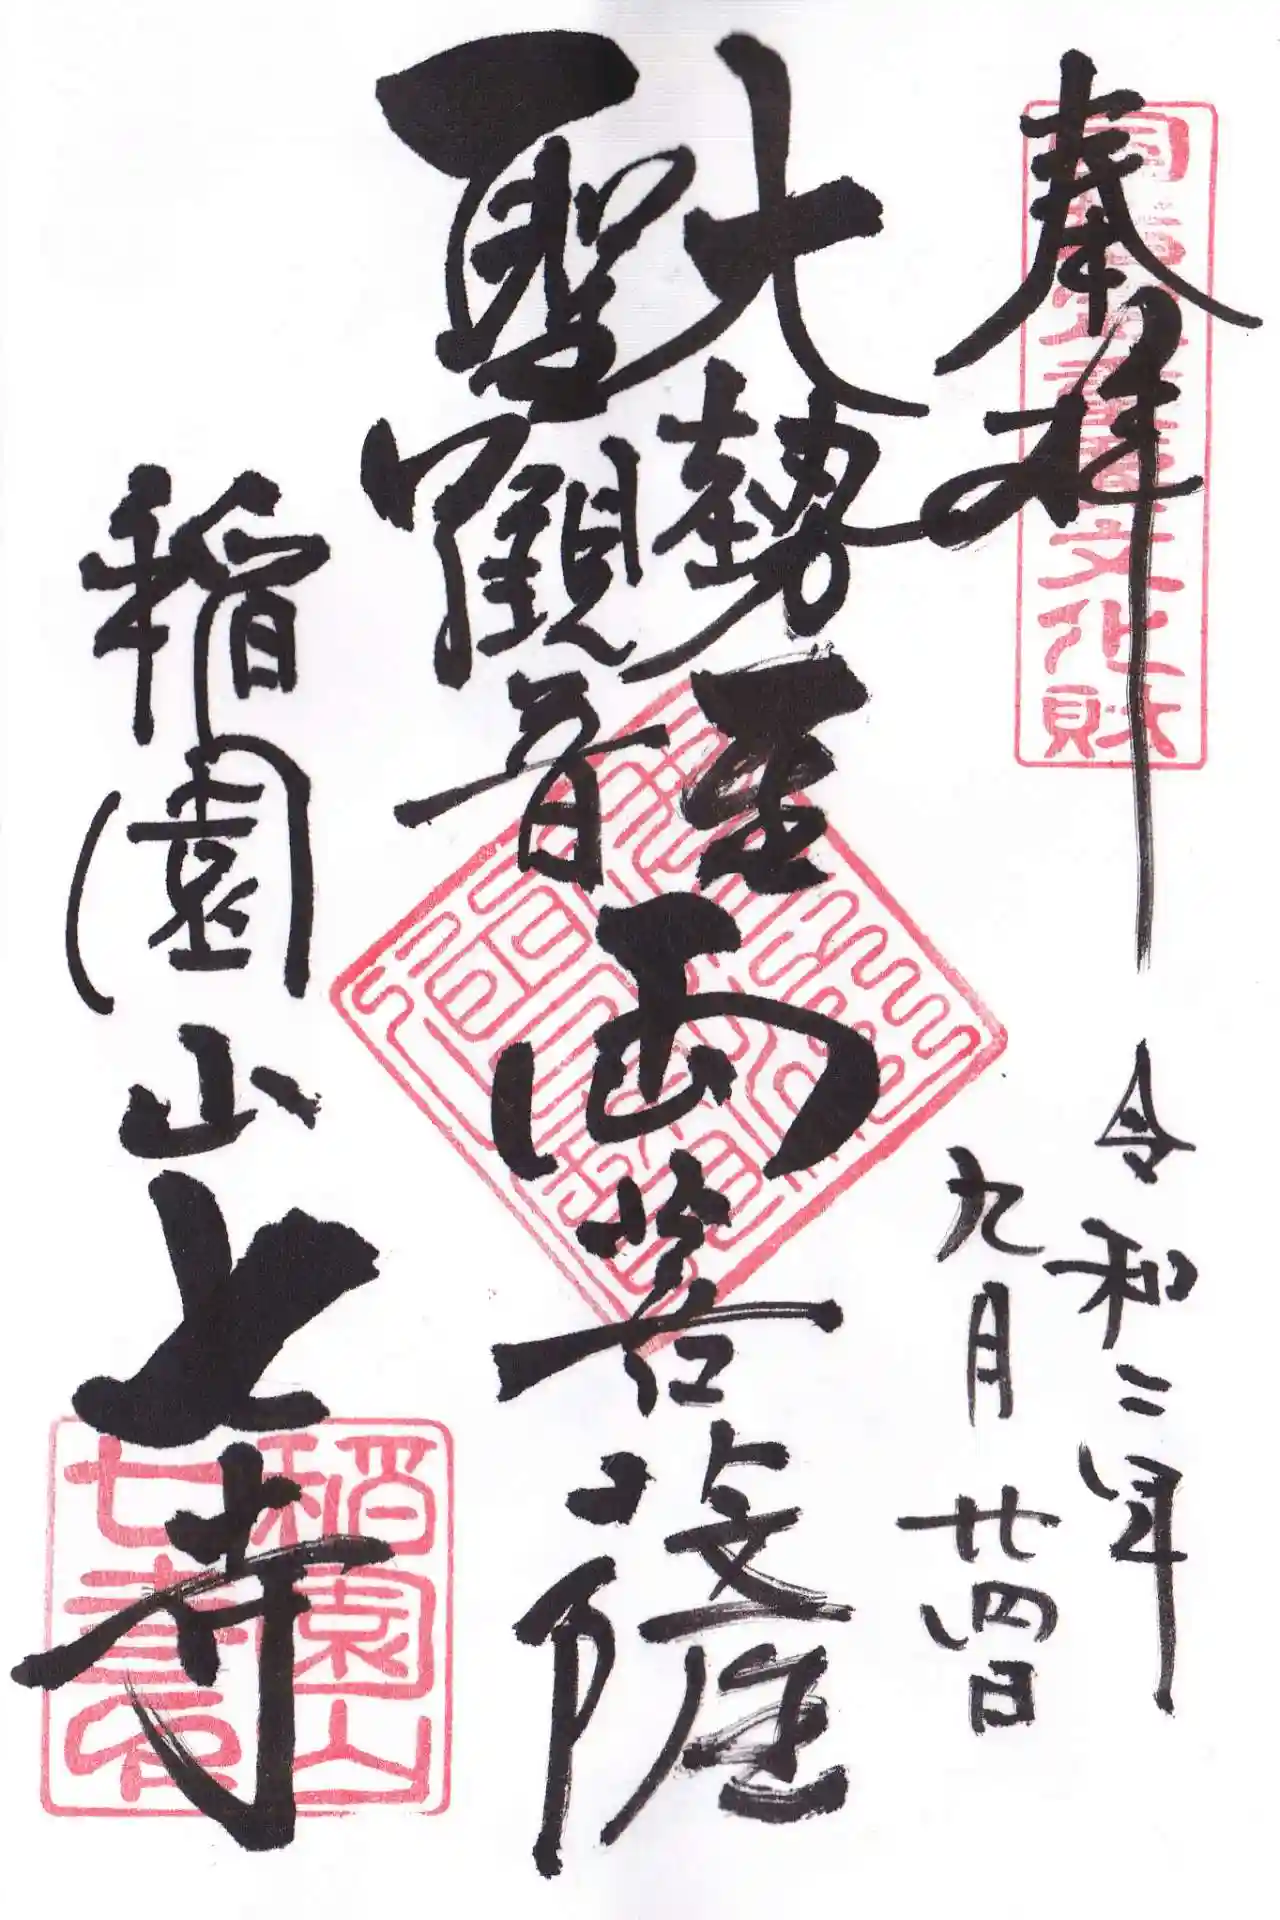 奉拝
国指定重要文化財
令和二年
九月廿四日
大勢至
聖觀音
両菩薩
稲園山七寺
稲園山
七寺印